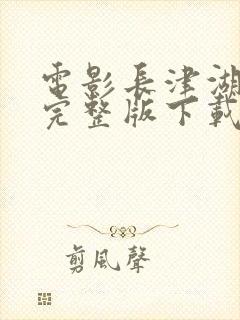 電影長津湖
完整版下載
剪風聲